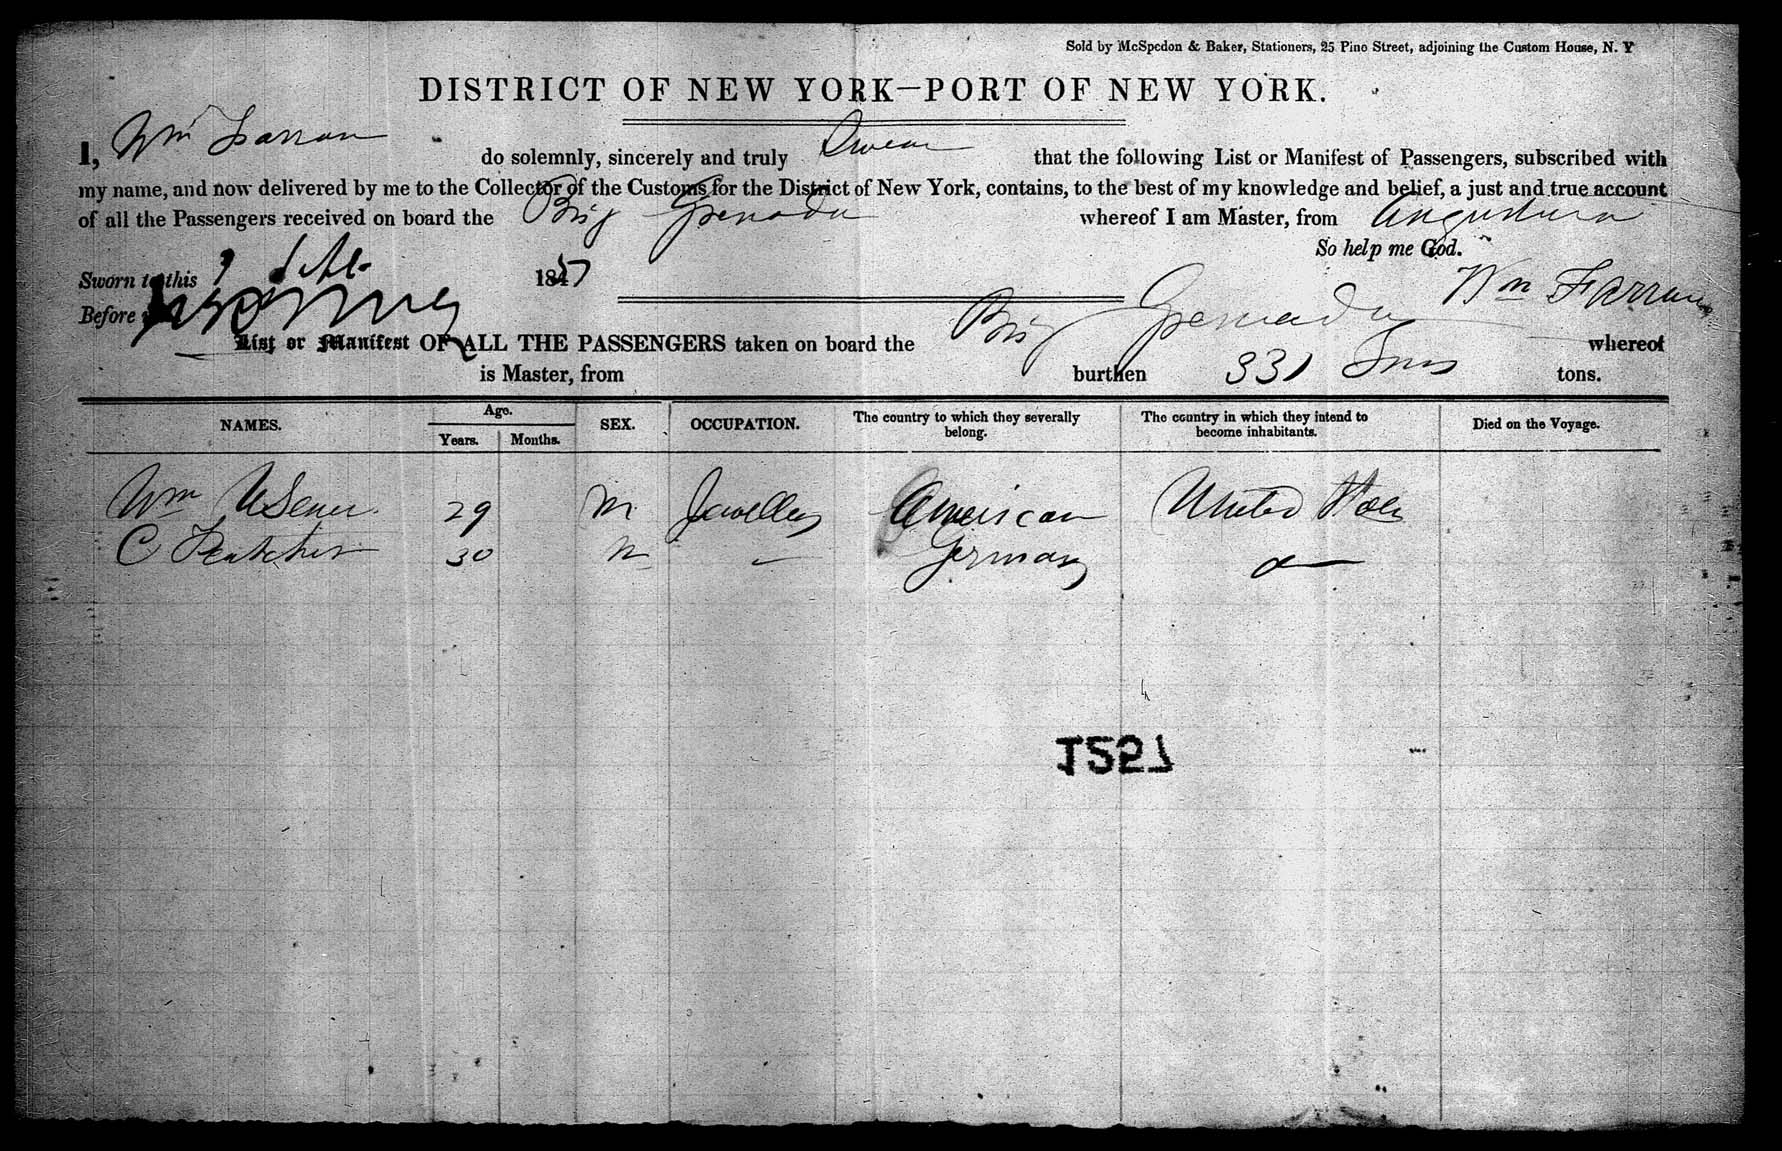 Sold by McSpedon & Baker, Stationers, 25 Pine Street, adjoining the Custom House, N. Y
DISTRICT OF NEW YORK—PORT OF NEW YORK.
I, Wm Farran do solemnly, sincerely and truly Swear that the following List or Manifest of Passengers, subscribed with
my name, and now delivered by me to the Collector of the Customs for the District of New York, contains, to the best of my knowledge and belief, a just and true account
of all the Passengers received on board the Brig Grenada whereof I am Master, from Angustura
So help me God.
Sworn to this 1857
Before
Wm Farran
List or Manifest OF ALL THE PASSENGERS taken on board the Brig Grenada whereof
is Master, from burthen 331 Tons tons.
NAMES. Age. Years. Months. SEX. OCCUPATION. The country to which they severally belong. The country in which they intend to become inhabitants. Died on the Voyage.
Wm 29 M Jeweller American United States
C 30 M — Germany do
1257